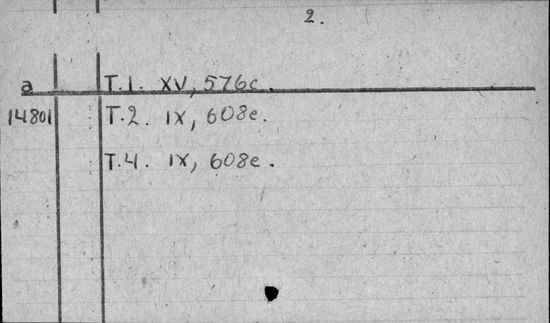 2.
a T.1. XV, 576c.
14801 T.2. IX, 608e.
T.4. IX, 608e.